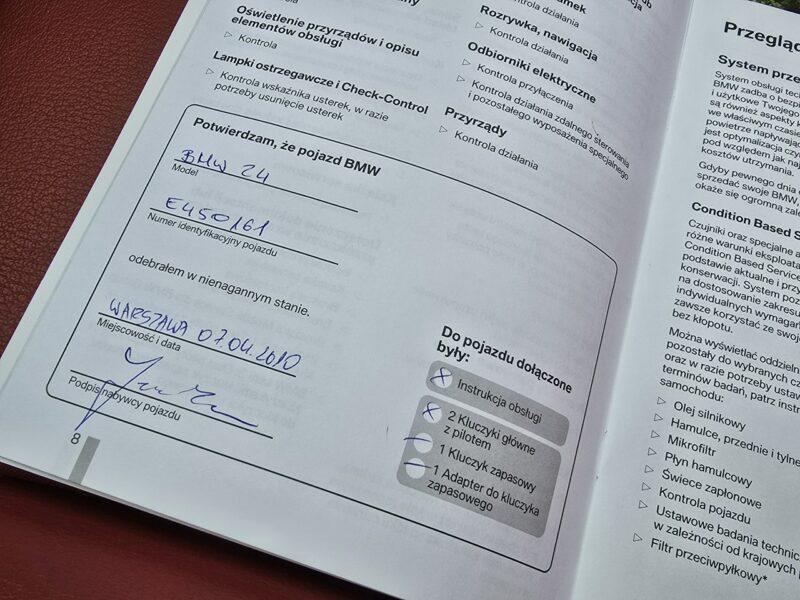 Oświetlenie przyrządów i opisu
elementów obsługi
▷ Kontrola
Lampki ostrzegawcze i Check-Control
▷ Kontrola wskaźnika usterek, w razie
potrzeby usunięcie usterek
▷ Kontrola działania
Rozrywka, nawigacja
▷ Kontrola działania
Odbiorniki elektryczne
▷ Kontrola przyłączenia
▷ Kontrola działania zdalnego sterowania
i pozostałego wyposażenia specjalnego
Przyrządy
▷ Kontrola działania
Potwierdzam, że pojazd BMW
BMW Z4
Model
E450161
Numer identyfikacyjny pojazdu
odebrałem w nienagannym stanie.
WARSZAWA 07.04.2010
Miejscowość i data
Podpis nabywcy pojazdu
Do pojazdu dołączone
były:
Instrukcja obsługi
2 Kluczyki główne
z pilotem
1 Kluczyk zapasowy
1 Adapter do kluczyka
zapasowego
8
System obsługi
BMW zadba o
i użytkowe Twojego
są również aspekty
we właściwym czasie
powietrze
jest optymalizacja
pod względem jak
kosztów utrzymania.
Gdyby pewnego dnia
sprzedać swoje BMW,
okaże się ogromną
Condition Based
Czujniki oraz specjalne
różne warunki
Condition Based Service
podstawie aktualne i
konserwacji. System
na dostosowanie
indywidualnych
zawsze korzystać ze
bez kłopotu.
Można wyświetlać
pozostały do wybranych
oraz w razie potrzeby
terminów badań, patrz
samochodu:
▷ Olej silnikowy
▷ Hamulce, przednie i tylne
▷ Mikrofiltr
▷ Płyn hamulcowy
▷ Świece zapłonowe
▷ Kontrola pojazdu
▷ Ustawowe badania
w zależności od krajowych
▷ Filtr przeciwpyłkowy*